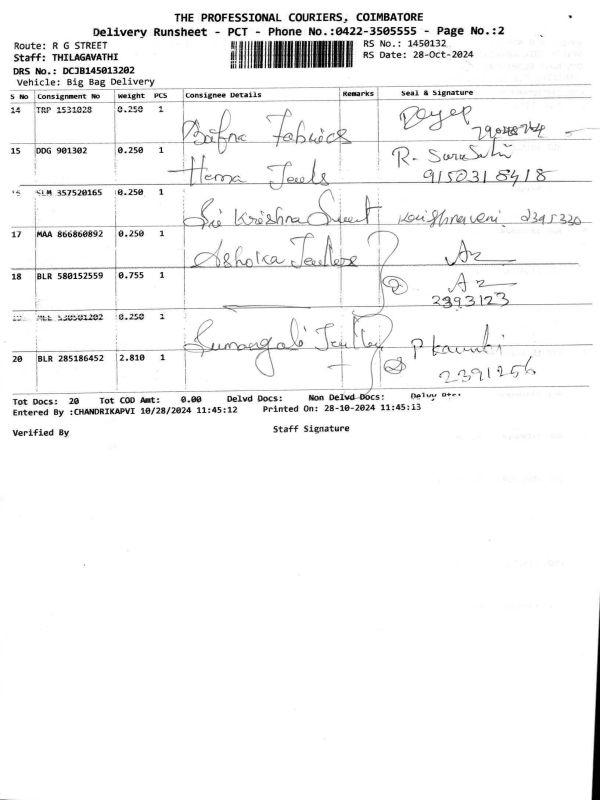 THE PROFESSIONAL COURIERS, COIMBATORE
Delivery Runsheet - PCT - Phone No.:0422-3505555 - Page No.:2
Route: R G STREET
RS No.: 1450132
Staff: THILAGAVATHI
RS Date: 28-Oct-2024
DRS No.: DCJB145013202
Vehicle: Big Bag Delivery
S No Consignment No Weight PCS Consignee Details Remarks Seal & Signature
14 TRP 1531028 0.250 1 Bafna Fabrics
15 DDG 901302 0.250 1 Hema Jewels R.
9150318418
16 SLM 357520165 0.250 1 Sri Krishna Sweet 2395330
17 MAA 866860892 0.250 1 Ashoka Jewllers
18 BLR 580152559 0.755 1
2393123
0.250 1 Sumangali
20 BLR 285186452 2.810 1
2391256
Tot Docs: 20 Tot COD Amt: 0.00 Delvd Docs: Non Delvd Docs:
Entered By :CHANDRIKAPVI 10/28/2024 11:45:12 Printed On: 28-10-2024 11:45:13
Verified By Staff Signature